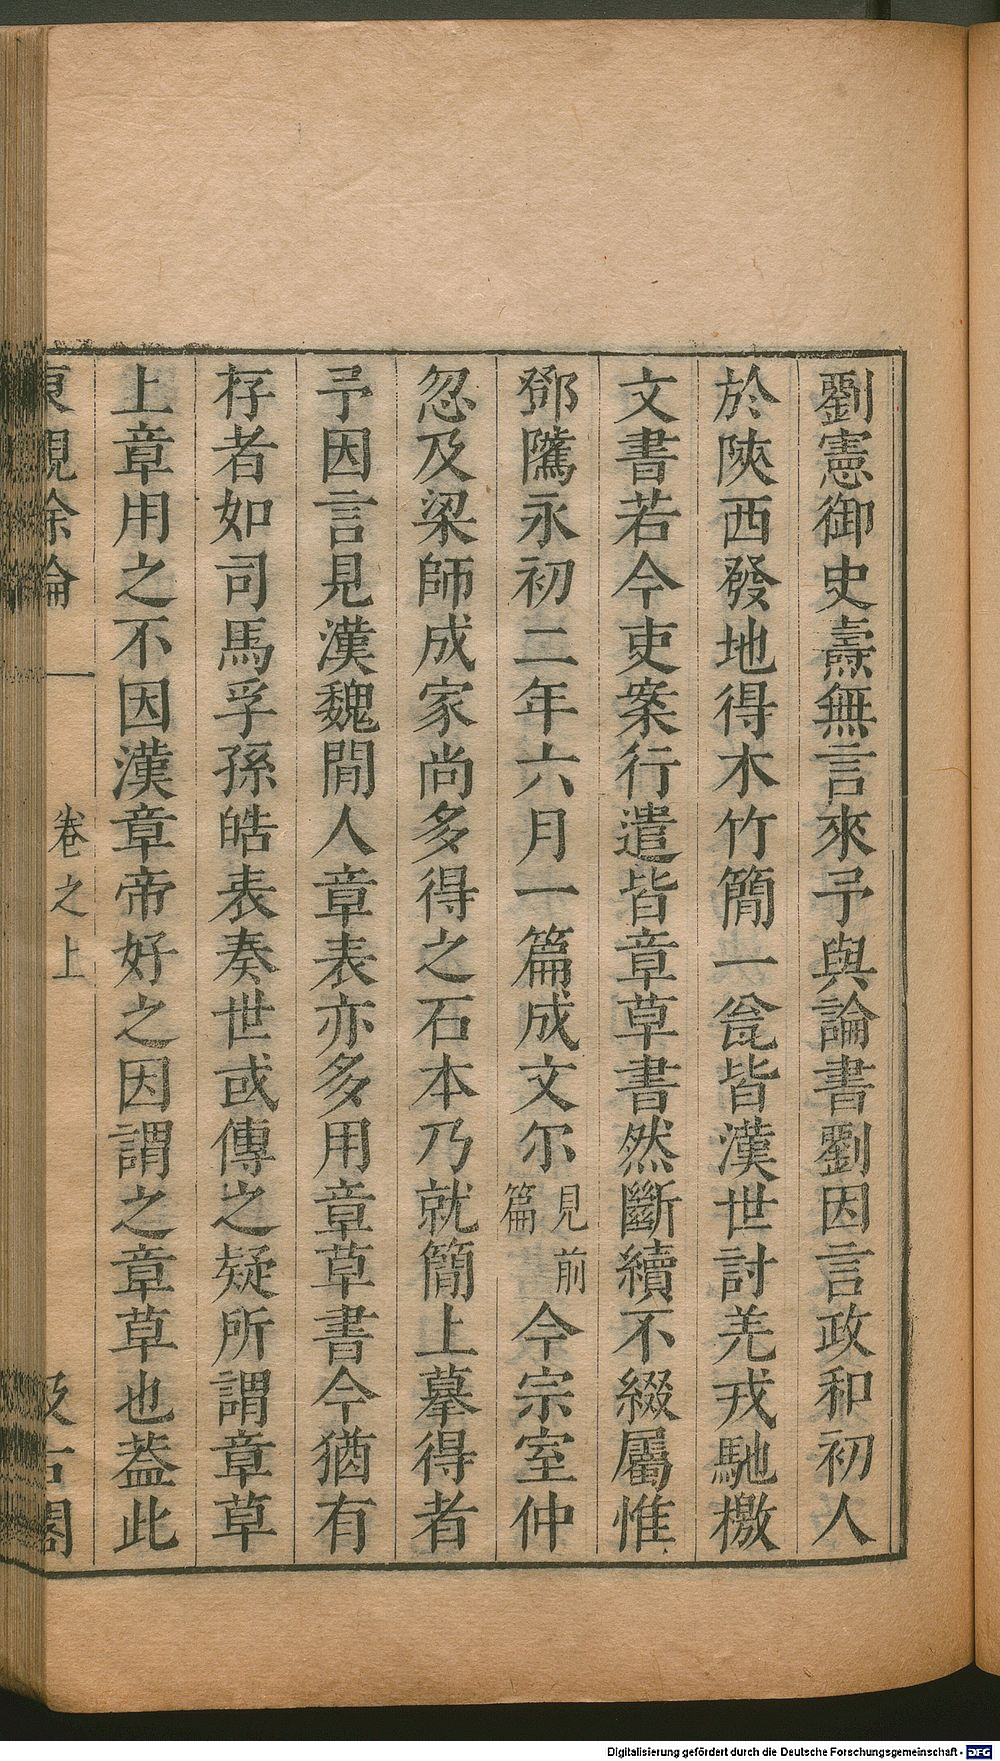 劉憲御史燾無言來予與論書劉因言政和初人
於陝西發地得木竹簡一瓮皆漢世討羌戎馳檄
文書若今吏案行遣皆章草書然斷續不綴屬惟
鄧隲永初二年六月一篇成文尔見前篇今宗室仲
忽及梁師成家尚多得之石本乃就簡上摹得者
予因言見漢魏閒人章表亦多用章草書今猶有
存者如司馬孚孫皓表奏世或傳之疑所謂章草
上章用之不因漢章帝好之因謂之章草也葢此
東觀余論 卷之上 汲古閣
Digitalisierung gefördert durch die Deutsche Forschungsgemeinschaft - DFG